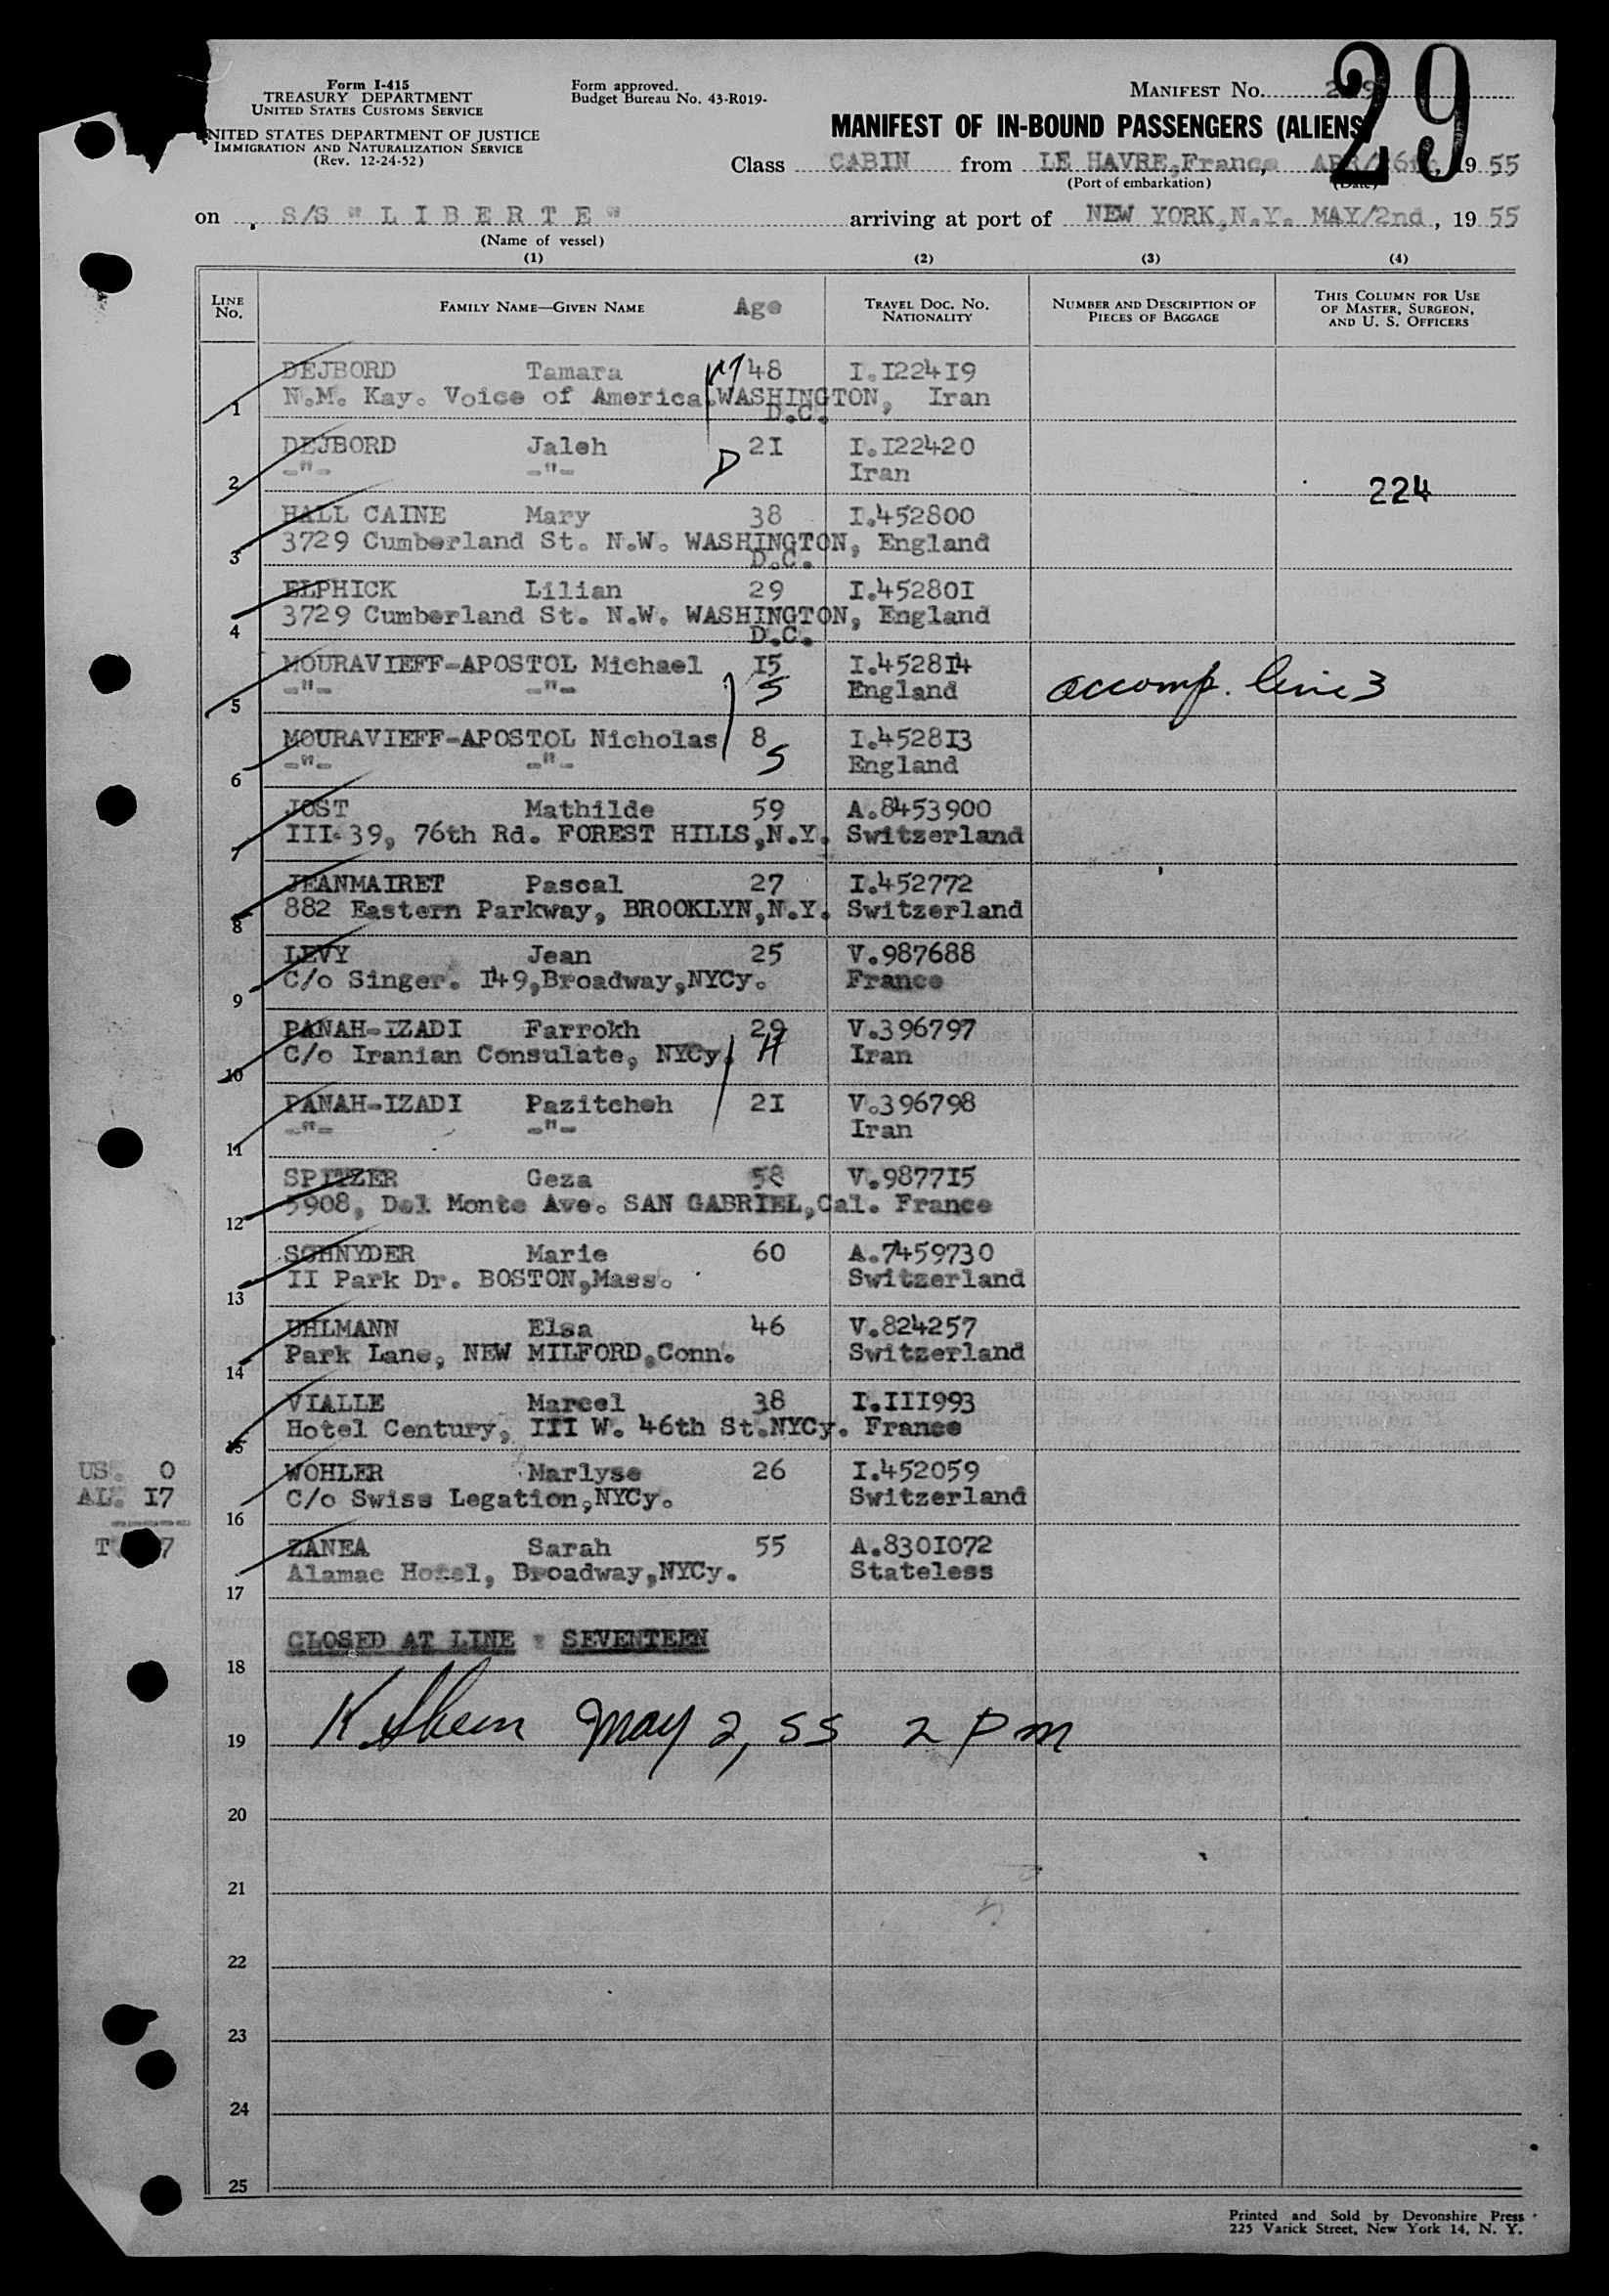 29
Form I-415
TREASURY DEPARTMENT
UNITED STATES CUSTOMS SERVICE
UNITED STATES DEPARTMENT OF JUSTICE
IMMIGRATION AND NATURALIZATION SERVICE
(Rev. 12-24-52)
Form approved.
Budget Bureau No. 43-R019-
MANIFEST NO.
MANIFEST OF IN-BOUND PASSENGERS (ALIENS)
Class CABIN from LE HAVRE,France, APR/26th, 1955
(Port of embarkation) (Date)
on S/S " L I B E R T E " arriving at port of NEW YORK,N.Y. MAY/2nd, 1955
(Name of vessel)
(1) (2) (3) (4)
LINE No. FAMILY NAME—GIVEN NAME Age TRAVEL DOC. NO. NATIONALITY NUMBER AND DESCRIPTION OF PIECES OF BAGGAGE THIS COLUMN FOR USE OF MASTER, SURGEON, AND U. S. OFFICERS
DEJBORD Tamara 48 I.I224I9
1 N.M. Kay. Voice of America.WASHINGTON, Iran
D.C.
DEJBORD Jaleh 2I I.I22420
2 -"- -"- D Iran
224
HALL CAINE Mary 38 I.452800
3 3729 Cumberland St. N.W. WASHINGTON, England
D.C.
ELPHICK Lilian 29 I.45280I
4 3729 Cumberland St. N.W. WASHINGTON, England
D.C.
MOURAVIEFF-APOSTOL Michael I5 I.4528I4
5 -"- -"- S England accomp. line 3
MOURAVIEFF-APOSTOL Nicholas 8 I.4528I3
6 -"- -"- S England
JOST Mathilde 59 A.8453900
7 III-39, 76th Rd. FOREST HILLS,N.Y. Switzerland
JEANMAIRET Pascal 27 I.452772
8 882 Eastern Parkway, BROOKLYN,N.Y. Switzerland
LEVY Jean 25 V.987688
9 C/o Singer. I49,Broadway,NYCy. France
PANAH-IZADI Farrokh 29 V.396797
10 C/o Iranian Consulate, NYCy. H Iran
PANAH-IZADI Pazitcheh 2I V.396798
11 -"- -"- Iran
SPITZER Geza 58 V.9877I5
12 5908, Del Monte Ave. SAN GABRIEL,Cal. France
SCHNYDER Marie 60 A.7459730
13 II Park Dr. BOSTON,Mass. Switzerland
UHLMANN Elsa 46 V.824257
14 Park Lane, NEW MILFORD,Conn. Switzerland
VIALLE Marcel 38 I.III993
15 Hotel Century, III W. 46th St.NYCy. France
US. 0
WOHLER Marlyse 26 I.452059
AL. I7
16 C/o Swiss Legation,NYCy. Switzerland
T 7
ZANEA Sarah 55 A.830I072
17 Alamac Hotel, Broadway,NYCy. Stateless
CLOSED AT LINE : SEVENTEEN
18
19 May 2, 55 2 pm
20
21
22
23
24
25
Printed and Sold by Devonshire Press
225 Varick Street, New York 14, N. Y.